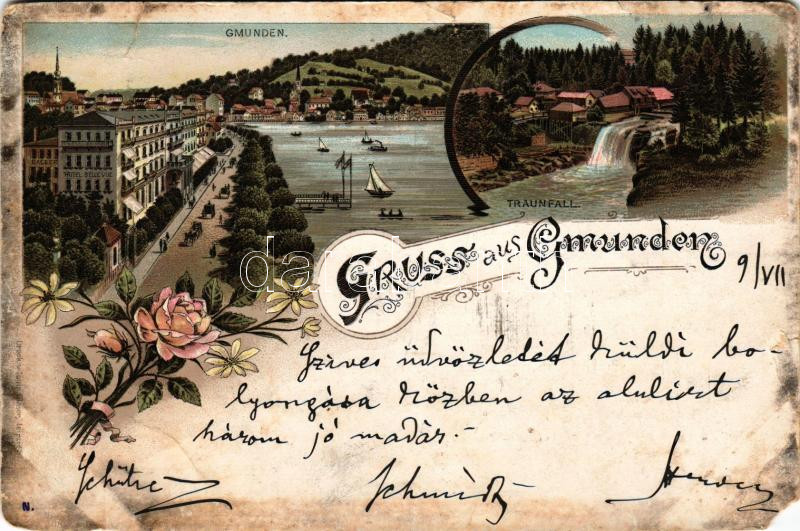 GMUNDEN.
HOTEL BELLEVUE
TRAUNFALL.
Gruss aus Gmunden
9/VII
Szives üdvözletét küldi bo-
lyongása közben az alulirt
három jó madár.-
Schütz
Schmidt
N.